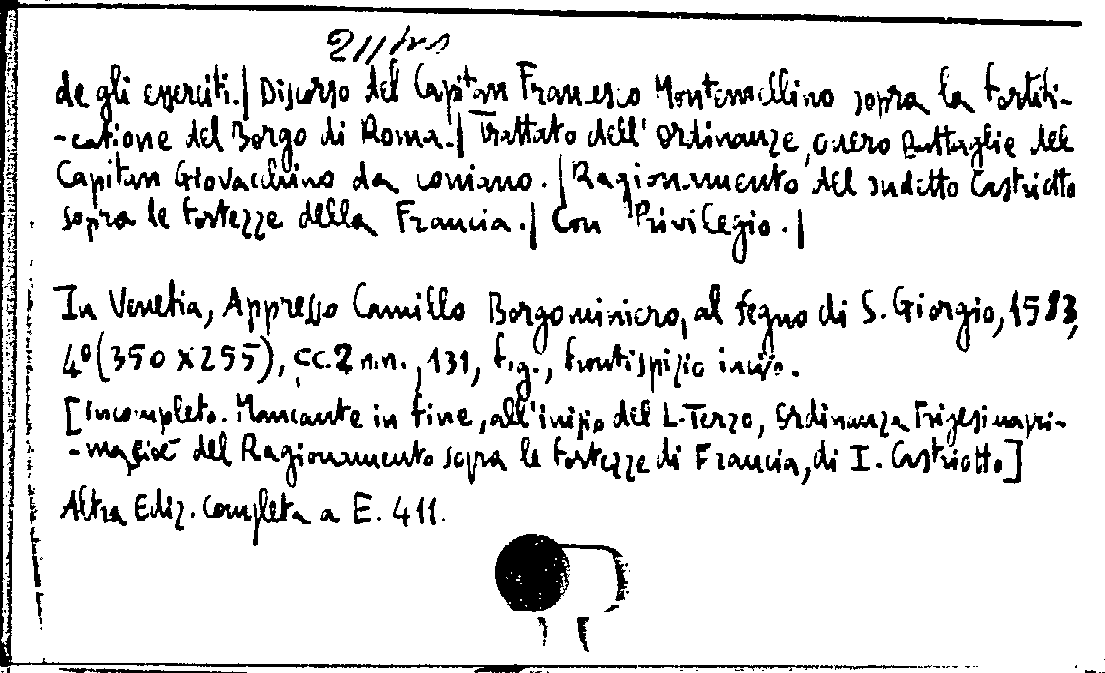 de gli eserciti.| Discorso del Capitan Francesco Montemellino sopra la fortifi-
-catione del Borgo di Roma.| Trattato dell' ordinanze, overo Battaglie del
Capitan Giovacchino da coniano.| Ragionamento del sudetto Castriotto
sopra le fortezze della Francia.| Con Privilegio.|
In Venetia, Appresso Camillo Borgominiero, al segno di S. Giorgio, 1583,
4º (350 x 255), cc. 2 n.n., 131, fig., frontispizio inciso.
[Incompleto. Mancante in fine, all'inizio del L. Terzo, Ordinanza Trigesimapri-
del Ragionamento sopra le fortezze di Francia, di I. Castriotto]
Altra Ediz. completa a E. 411.